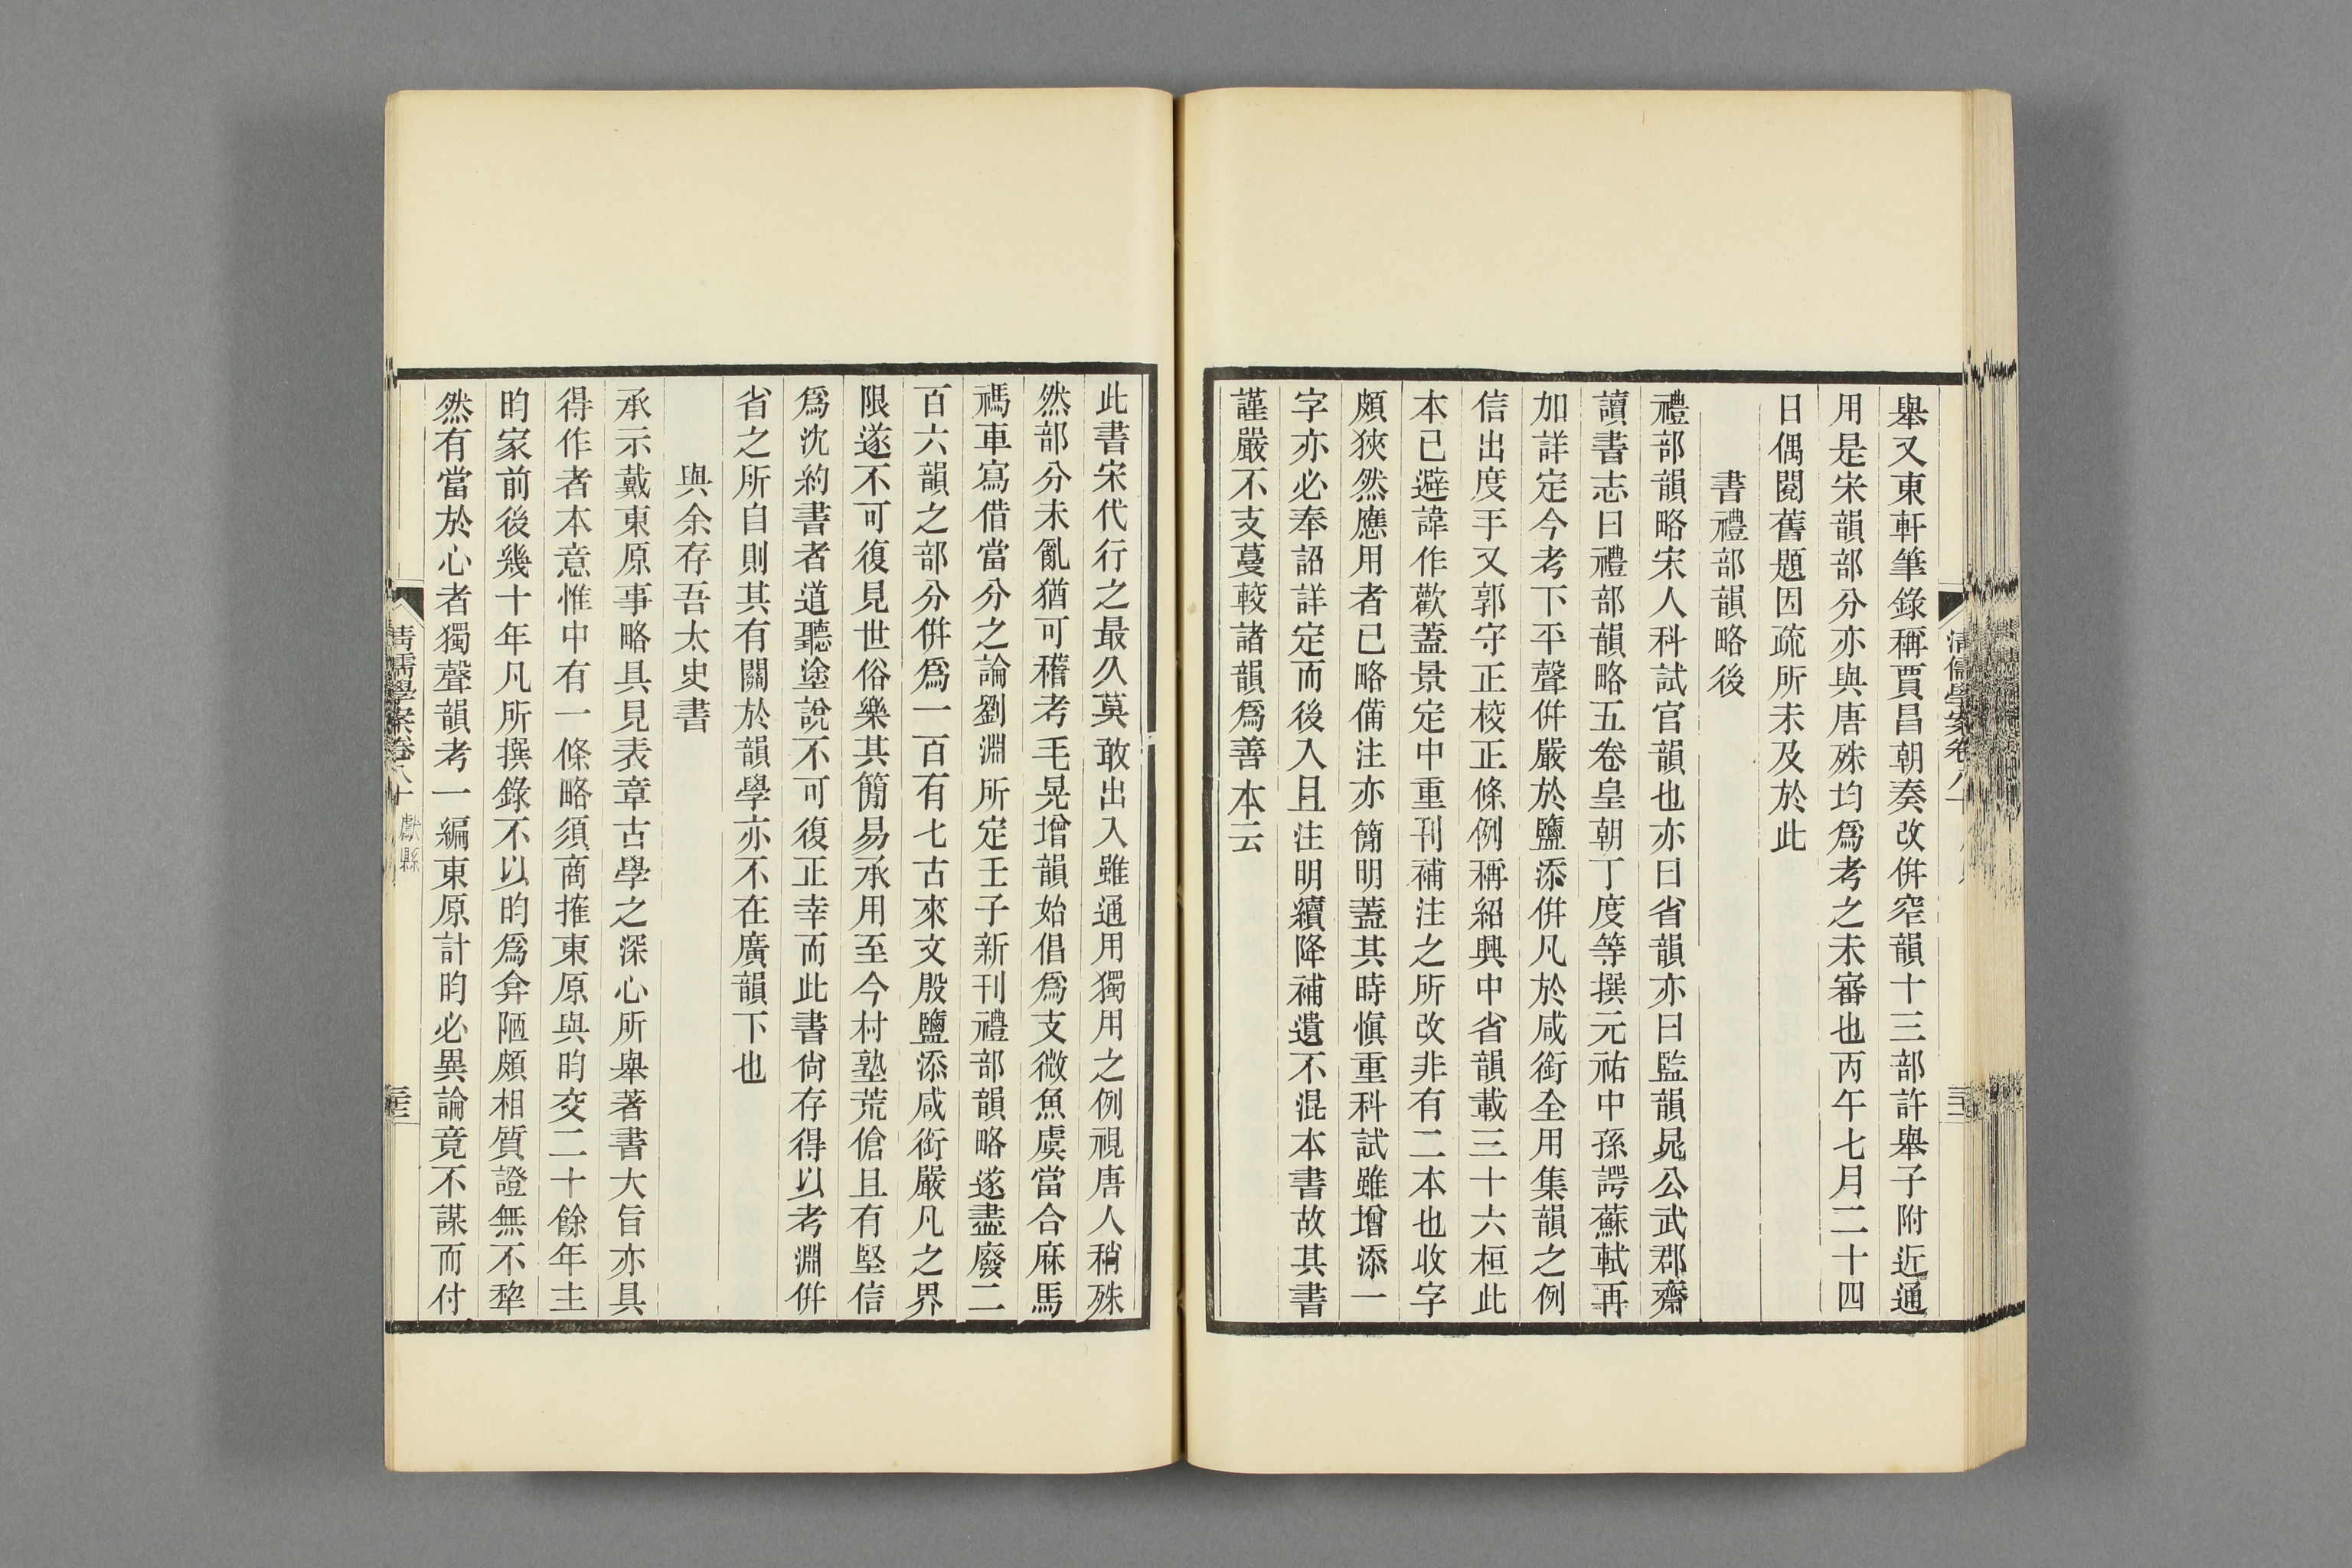 清儒學案卷八十
舉又東軒筆錄稱賈昌朝奏改併窄韻十三部許舉子附近通
用是宋韻部分亦與唐殊均爲考之未審也丙午七月二十四
日偶閱舊題因疏所未及於此
書禮部韻略後
禮部韻略宋人科試官韻也亦曰省韻亦曰監韻晁公武郡齋
讀書志曰禮部韻略五卷皇朝丁度等撰元祐中孫諤蘇軾再
加詳定今考下平聲併嚴於鹽添併凡於咸銜全用集韻之例
信出度手又郭守正校正條例稱紹興中省韻載三十六桓此
本已避諱作歡蓋景定中重刊補注之所改非有二本也收字
頗狹然應用者已略備注亦簡明蓋其時愼重科試雖增添一
字亦必奉詔詳定而後入且注明續降補遺不混本書故其書
謹嚴不支蔓較諸韻爲善本云
此書宋代行之最久莫敢出入雖通用獨用之例視唐人稍殊
然部分未亂猶可稽考毛晃增韻始倡爲支微魚虞當合麻馬
禡車寫借當分之論劉淵所定壬子新刊禮部韻略遂盡廢二
百六韻之部分併爲一百有七古來文殷鹽添咸銜嚴凡之界
限遂不可復見世俗樂其簡易承用至今村塾荒傖且有堅信
爲沈約書者道聽塗說不可復正幸而此書尙存得以考淵併
省之所自則其有關於韻學亦不在廣韻下也
與余存吾太史書
承示戴東原事略具見表章古學之深心所舉著書大旨亦具
得作者本意惟中有一條略須商搉東原與昀交二十餘年主
昀家前後幾十年凡所撰錄不以昀爲弇陋頗相質證無不犂
然有當於心者獨聲韻考一編東原計昀必異論竟不謀而付
清儒學案卷八十 獻縣